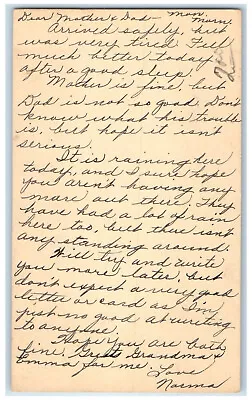 Dear Mother & Dad— Mon. Morn.
Arrived safely, but
was very tired. Feel
much better today
after a good sleep.
Mother is fine, but
Dad is not so good. Don't
know what his trouble
is, but hope it isn't
serious.
It is raining here
today, and I sure hope
you aren't having any
more out there. They
have had a lot of rain
here too, but there isn't
any standing around.
Will try and write
you more later, but
don't expect a very good
letter or card as I'm
just no good at writing
to anyone.
Hope you are both
fine. Greet Grandma &
Emma for me. Love
Norma